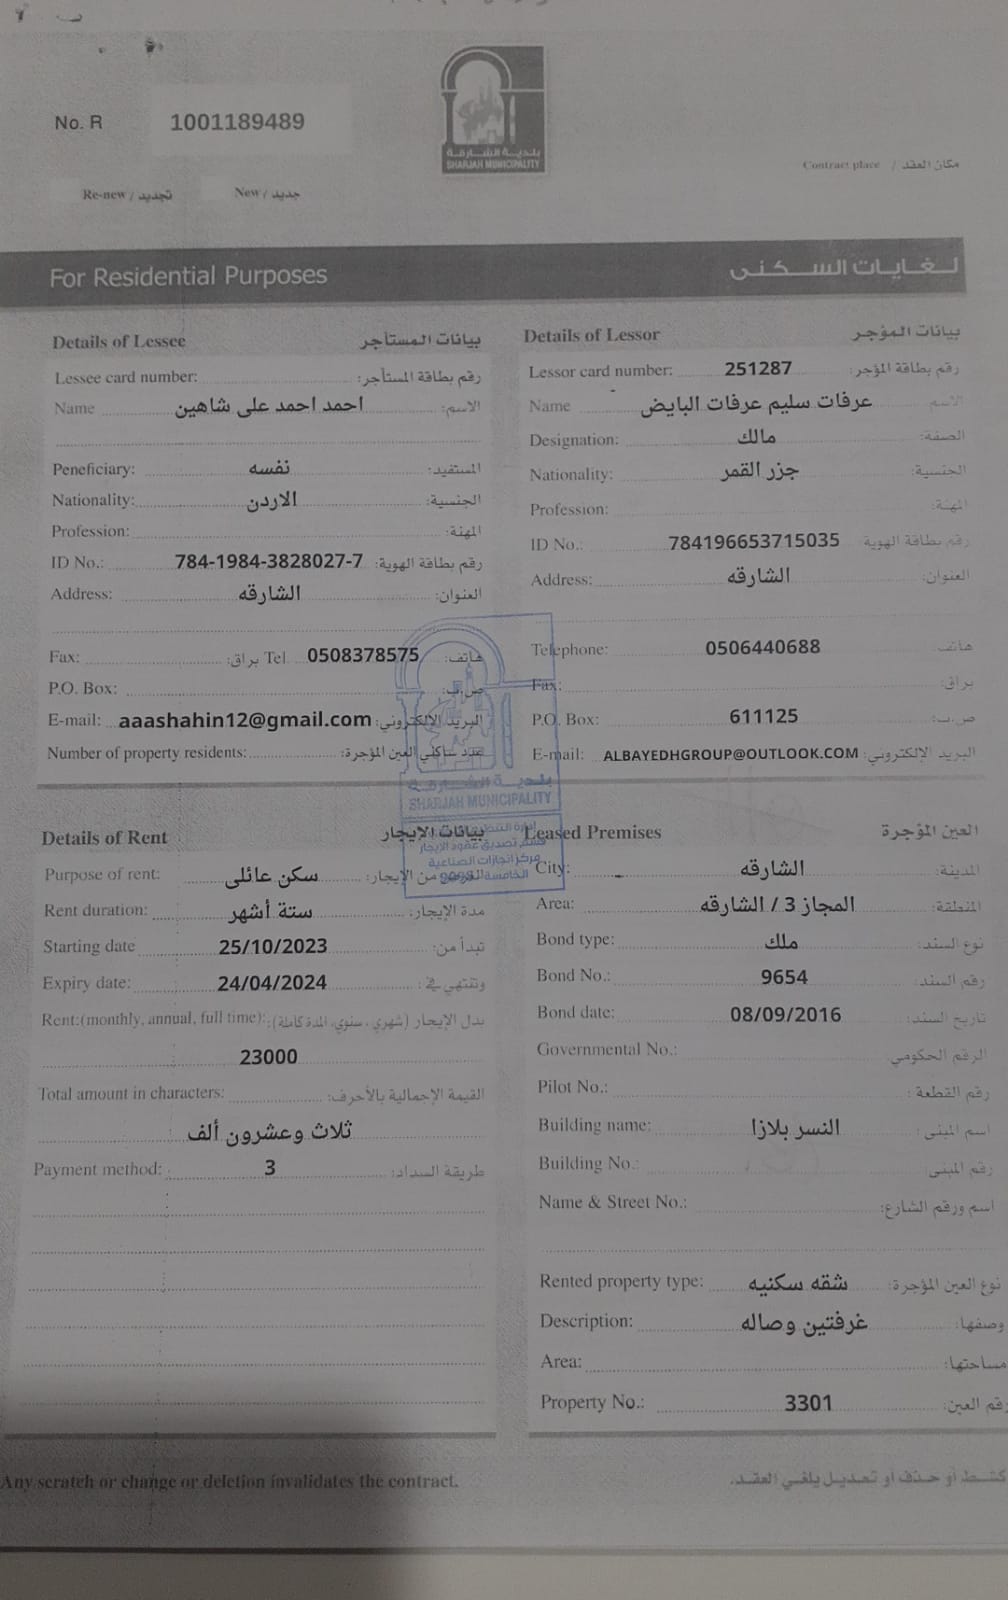 No. R 1001189489
بلدية الشارقة
SHARJAH MUNICIPALITY
Contract place / مكان العقد
Re-new / تجديد New / جديد
For Residential Purposes لغايات السكنى
Details of Lessee بيانات المستأجر
Lessee card number: رقم بطاقة المستأجر:
Name احمد احمد على شاهين الاسم:
Peneficiary: نفسه المستفيد:
Nationality: الاردن الجنسية:
Profession: المهنة:
ID No.: 784-1984-3828027-7 رقم بطاقة الهوية:
Address: الشارقه العنوان:
Fax: براق: Tel 0508378575 هاتف:
P.O. Box: ص.ب:
E-mail: aaashahin12@gmail.com البريد الإلكتروني:
Number of property residents: عدد ساكني العين المؤجرة:
Details of Lessor بيانات المؤجر
Lessor card number: 251287 رقم بطاقة المؤجر:
Name عرفات سليم عرفات البايض الاسم
Designation: مالك الصفة:
Nationality: جزر القمر الجنسية:
Profession: المهنة:
ID No.: 784196653715035 رقم بطاقة الهوية
Address: الشارقه العنوان:
Telephone: 0506440688 هاتف
Fax: براق:
P.O. Box: 611125 ص.ب:
E-mail: ALBAYEDHGROUP@OUTLOOK.COM البريد الإلكتروني:
بلدية الشارقة
SHARJAH MUNICIPALITY
قسم تصديق عقود الإيجار
مركز انجازات الصناعية
الخامسة
Details of Rent بيانات الإيجار
Purpose of rent: سكن عائلى الغرض من الإيجار:
Rent duration: ستة أشهر مدة الإيجار:
Starting date 25/10/2023 تبدأ من:
Expiry date: 24/04/2024 وتنتهي في:
Rent:(monthly, annual, full time): بدل الإيجار (شهري، سنوي، المدة كاملة):
23000
Total amount in characters: القيمة الإجمالية بالأحرف:
ثلاث وعشرون ألف
Payment method: 3 طريقة السداد:
Leased Premises العين المؤجرة
City: الشارقه المدينة:
Area: المجاز 3 / الشارقه المنطقة:
Bond type: ملك نوع السند:
Bond No.: 9654 رقم السند:
Bond date: 08/09/2016 تاريخ السند:
Governmental No.: الرقم الحكومي
Pilot No.: رقم القطعة :
Building name: النسر بلازا اسم المبنى :
Building No.: رقم المبنى
Name & Street No.: اسم ورقم الشارع:
Rented property type: شقه سكنيه نوع العين المؤجرة:
Description: غرفتين وصاله وصفها:
Area: مساحتها:
Property No.: 3301 رقم العين:
Any scratch or change or deletion invalidates the contract. كشط أو حذف أو تعديل يلغي العقد.